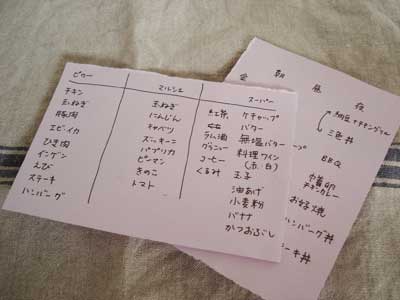 ピカー
チキン
玉ねぎ
豚肉
エビ・イカ
ひき肉
インゲン
えび
ステーキ
ハンバーグ
マルシェ
玉ねぎ
にんじん
キャベツ
ズッキーニ
パプリカ
ピーマン
きのこ
トマト
スーパー
紅茶
ラム酒
グラニュー
コーヒー
くるみ
ケチャップ
バター
無塩バター
料理ワイン
(赤、白)
玉子
油あげ
小麦粉
バナナ
かつおぶし
朝 昼 夜
三色丼
BBQ
チキンカレー
お好焼
ハンバーグ丼
ーキ丼